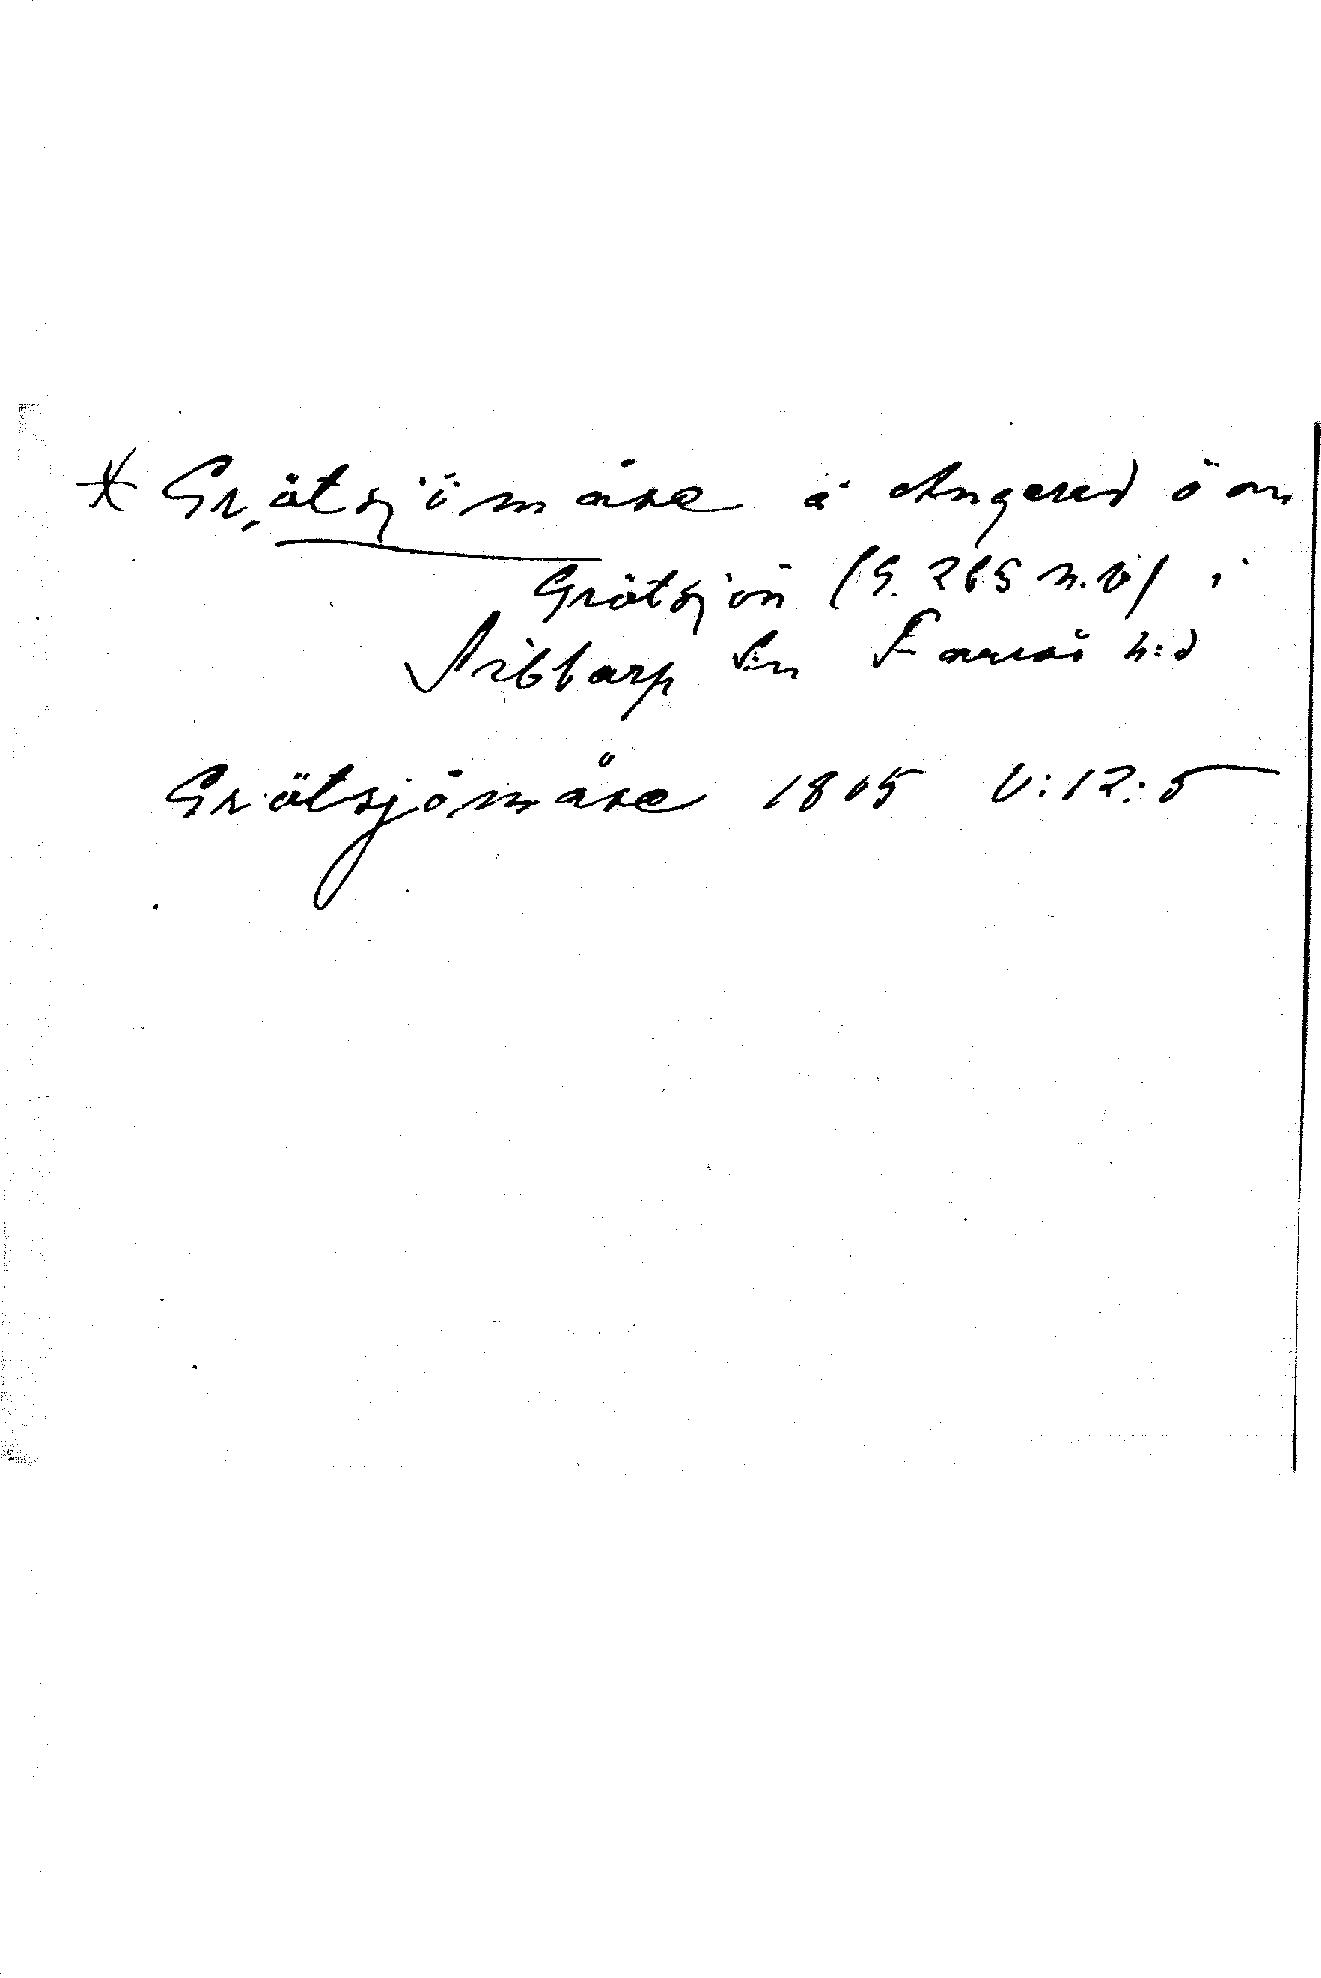 * Grötsjömåse å Angered ö om
Grötsjön (S. 265 n.v) i
Sibbarp s:n Faurås h:d
Grötsjömåse 1805 V:12:5